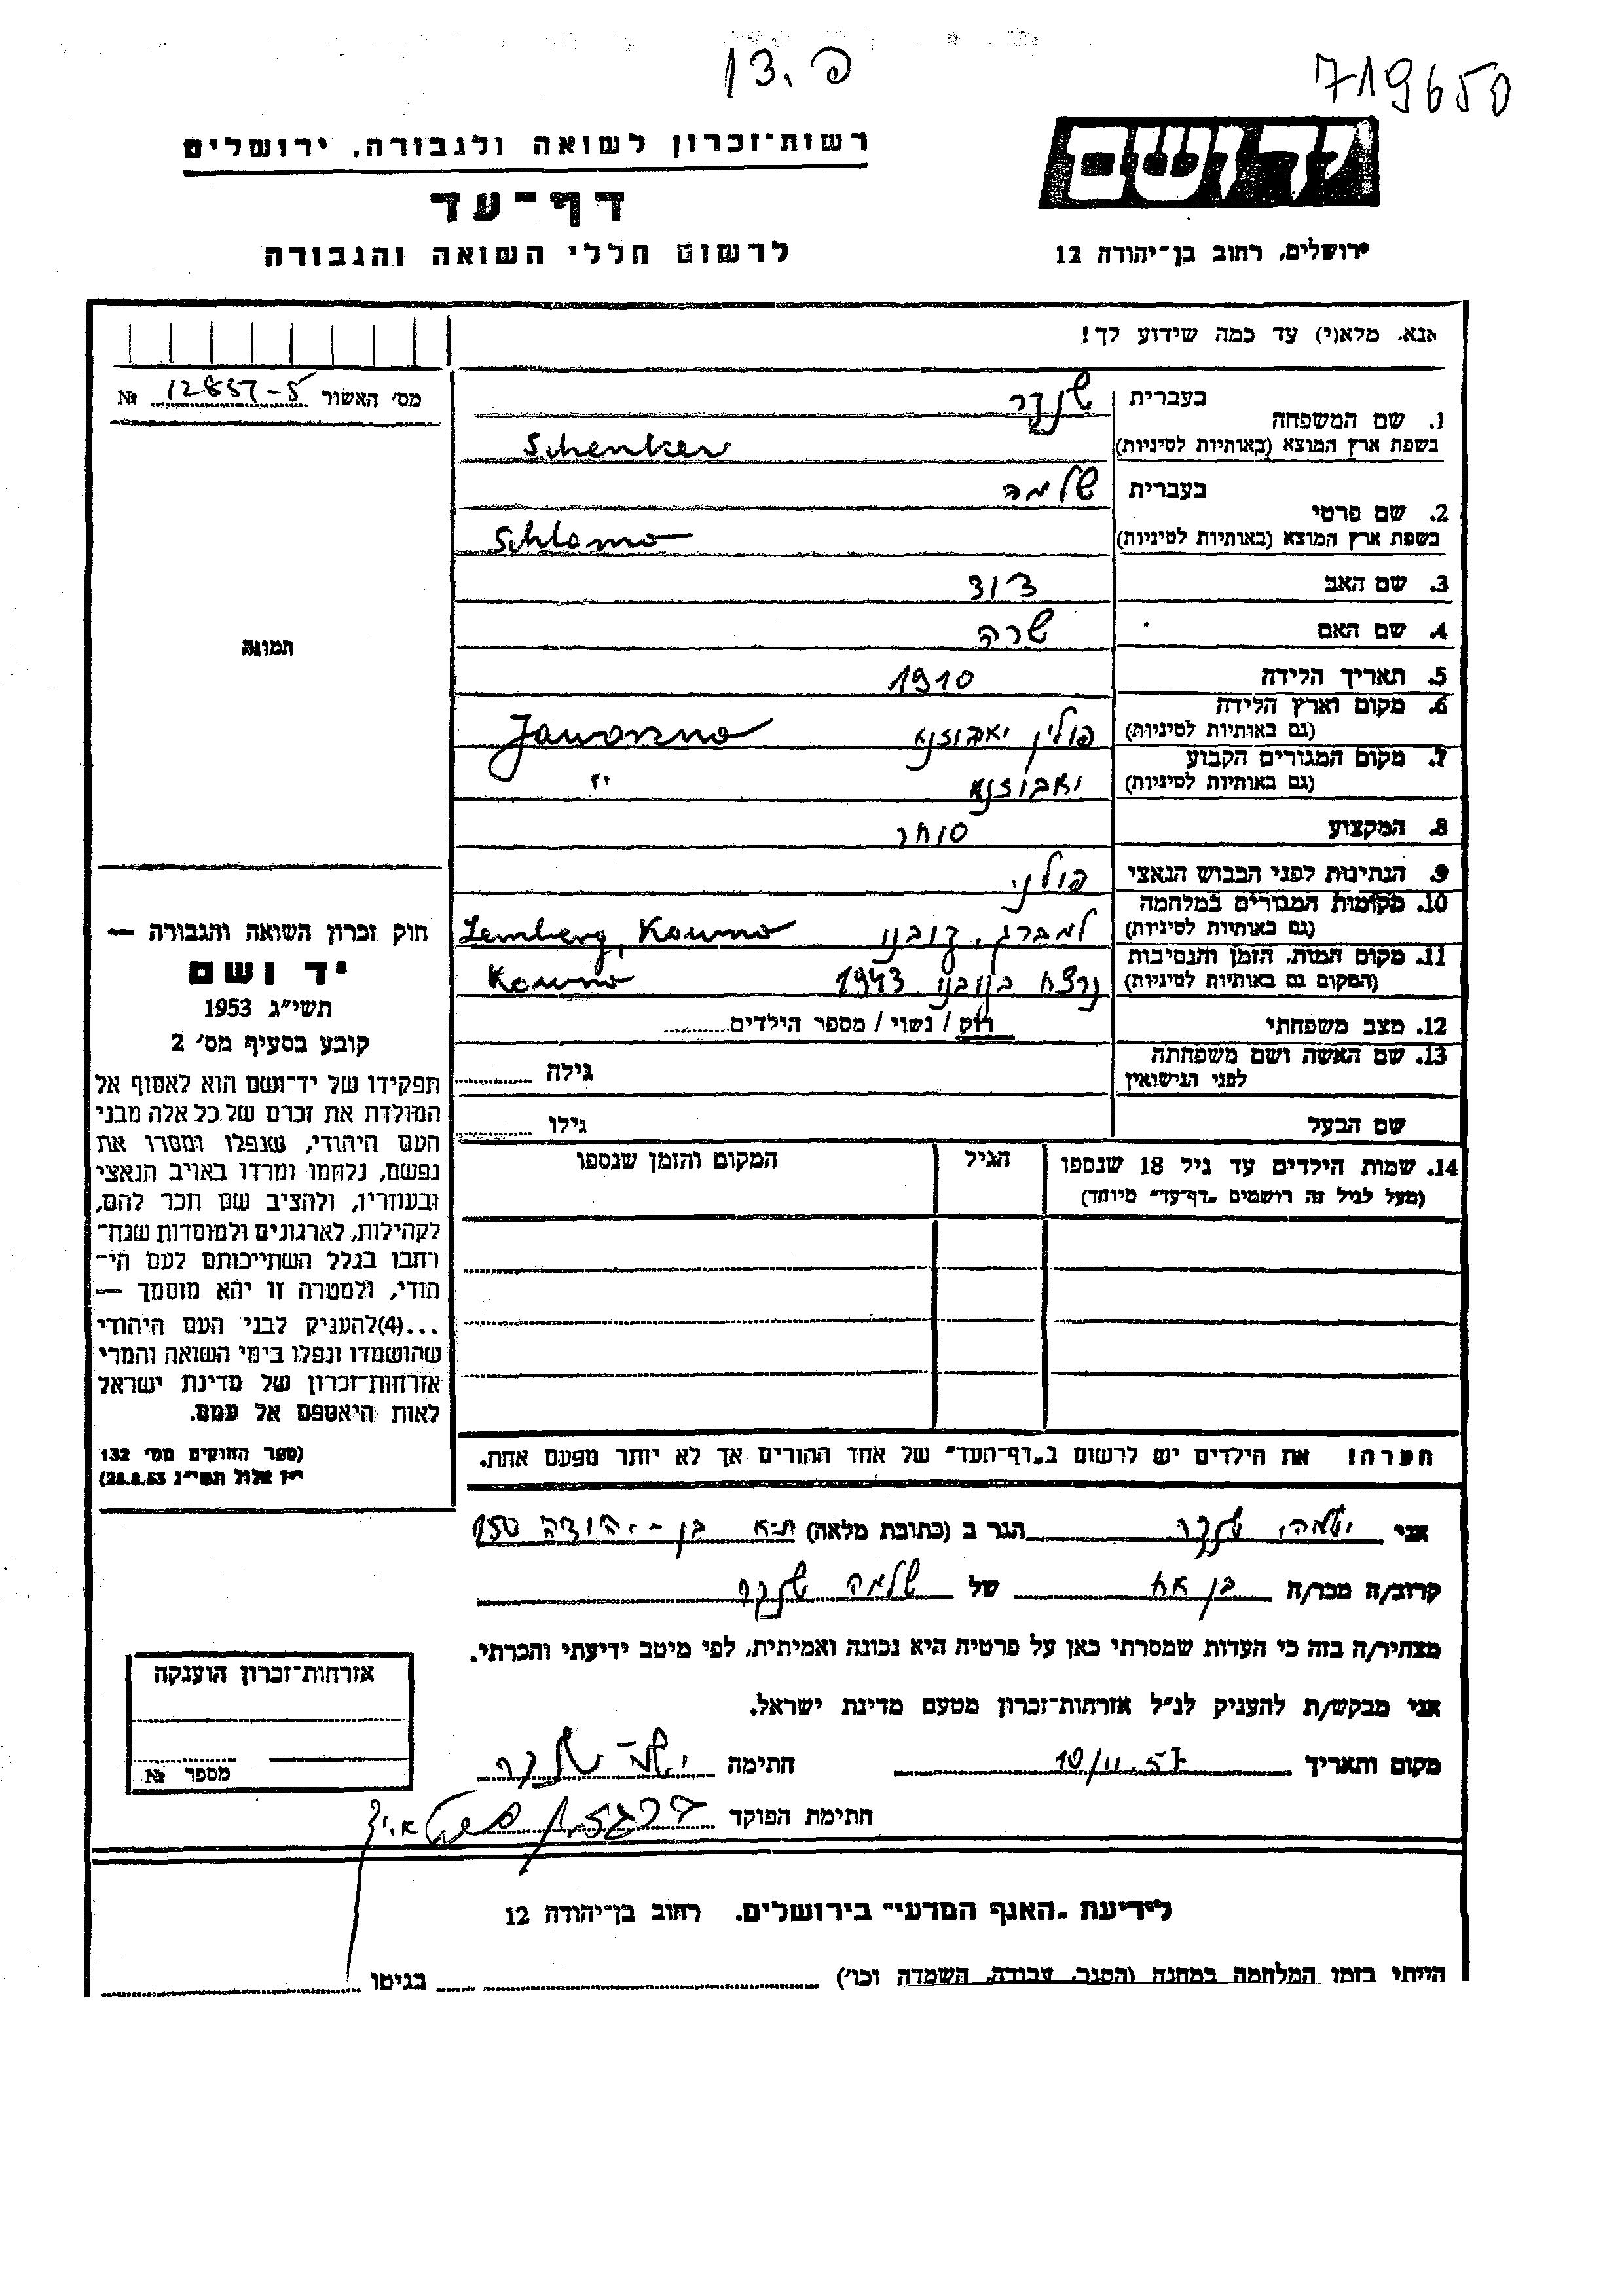 פ. 13
719650
יד ושם
רשות־זכרון לשואה ולגבורה, ירושלים
דף־עד
לרשום חללי השואה והגבורה
ירושלים, רחוב בן־יהודה 12
אנא, מלא(י) עד כמה שידוע לך!
מס׳ האשור 12857-5 №
1. שם המשפחה בעברית שנקר
בשפת ארץ המוצא (באותיות לטיניות) Schenker
2. שם פרטי בעברית שלמה
בשפת ארץ המוצא (באותיות לטיניות) Schlomo
3. שם האב דוד
4. שם האם שרה
5. תאריך הלידה 1910
6. מקום וארץ הלידה
(גם באותיות לטיניות) פולין יאבוזנא Jaworzno
7. מקום המגורים הקבוע
(גם באותיות לטיניות) יאבוזנא "
8. המקצוע סוחר
9. הנתינות לפני הכבוש הנאצי פולני
10. מקומות המגורים במלחמה
(גם באותיות לטיניות) למברג, קובנו Lemberg, Kowno
11. מקום המות, הזמן והנסיבות
(המקום גם באותיות לטיניות) נרצח בקובנו 1943 Kowno
12. מצב משפחתי רוק / נשוי / מספר הילדים
13. שם האשה ושם משפחתה
לפני הנישואין גילה
שם הבעל גילו
14. שמות הילדים עד גיל 18 שנספו הגיל המקום והזמן שנספו
(מעל לגיל זה רושמים „דף־עד״ מיוחד)
תמונה
חוק זכרון השואה והגבורה —
יד ושם
תשי״ג 1953
קובע בסעיף מס׳ 2
תפקידו של יד־ושם הוא לאסוף אל
המולדת את זכרם של כל אלה מבני
העם היהודי, שנפלו ומסרו את
נפשם, נלחמו ומרדו באויב הנאצי
ובעוזריו, ולהציב שם וזכר להם,
לקהילות, לארגונים ולמוסדות שנח־
רבו בגלל השתייכותם לעם הי־
הודי, ולמטרה זו יהא מוסמך —
...(4)להעניק לבני העם היהודי
שהושמדו ונפלו בימי השואה והמרי
אזרחות־זכרון של מדינת ישראל
לאות היאספם אל עמם.
(ספר החוקים מס׳ 132
י״ז אלול תשי״ג 28.8.53)
הערה! את הילדים יש לרשום ב„דף־העד״ של אחד ההורים אך לא יותר מפעם אחת.
אני שנקר הגר ב (כתובת מלאה) ת״א בן-יהודה 150
קרוב/ה מכר/ה בן אח של שלמה שנקר
מצהיר/ה בזה כי העדות שמסרתי כאן על פרטיה היא נכונה ואמיתית, לפי מיטב ידיעתי והכרתי.
אני מבקש/ת להעניק לנ״ל אזרחות־זכרון מטעם מדינת ישראל.
מקום ותאריך 10/11.57 חתימה שנקר
חתימת הפוקד
אזרחות־זכרון הוענקה
מספר №
לידיעת „האגף המדעי״ בירושלים, רחוב בן־יהודה 12
הייתי בזמן המלחמה במחנה (הסגר, עבודה, השמדה וכו׳) בגיטו